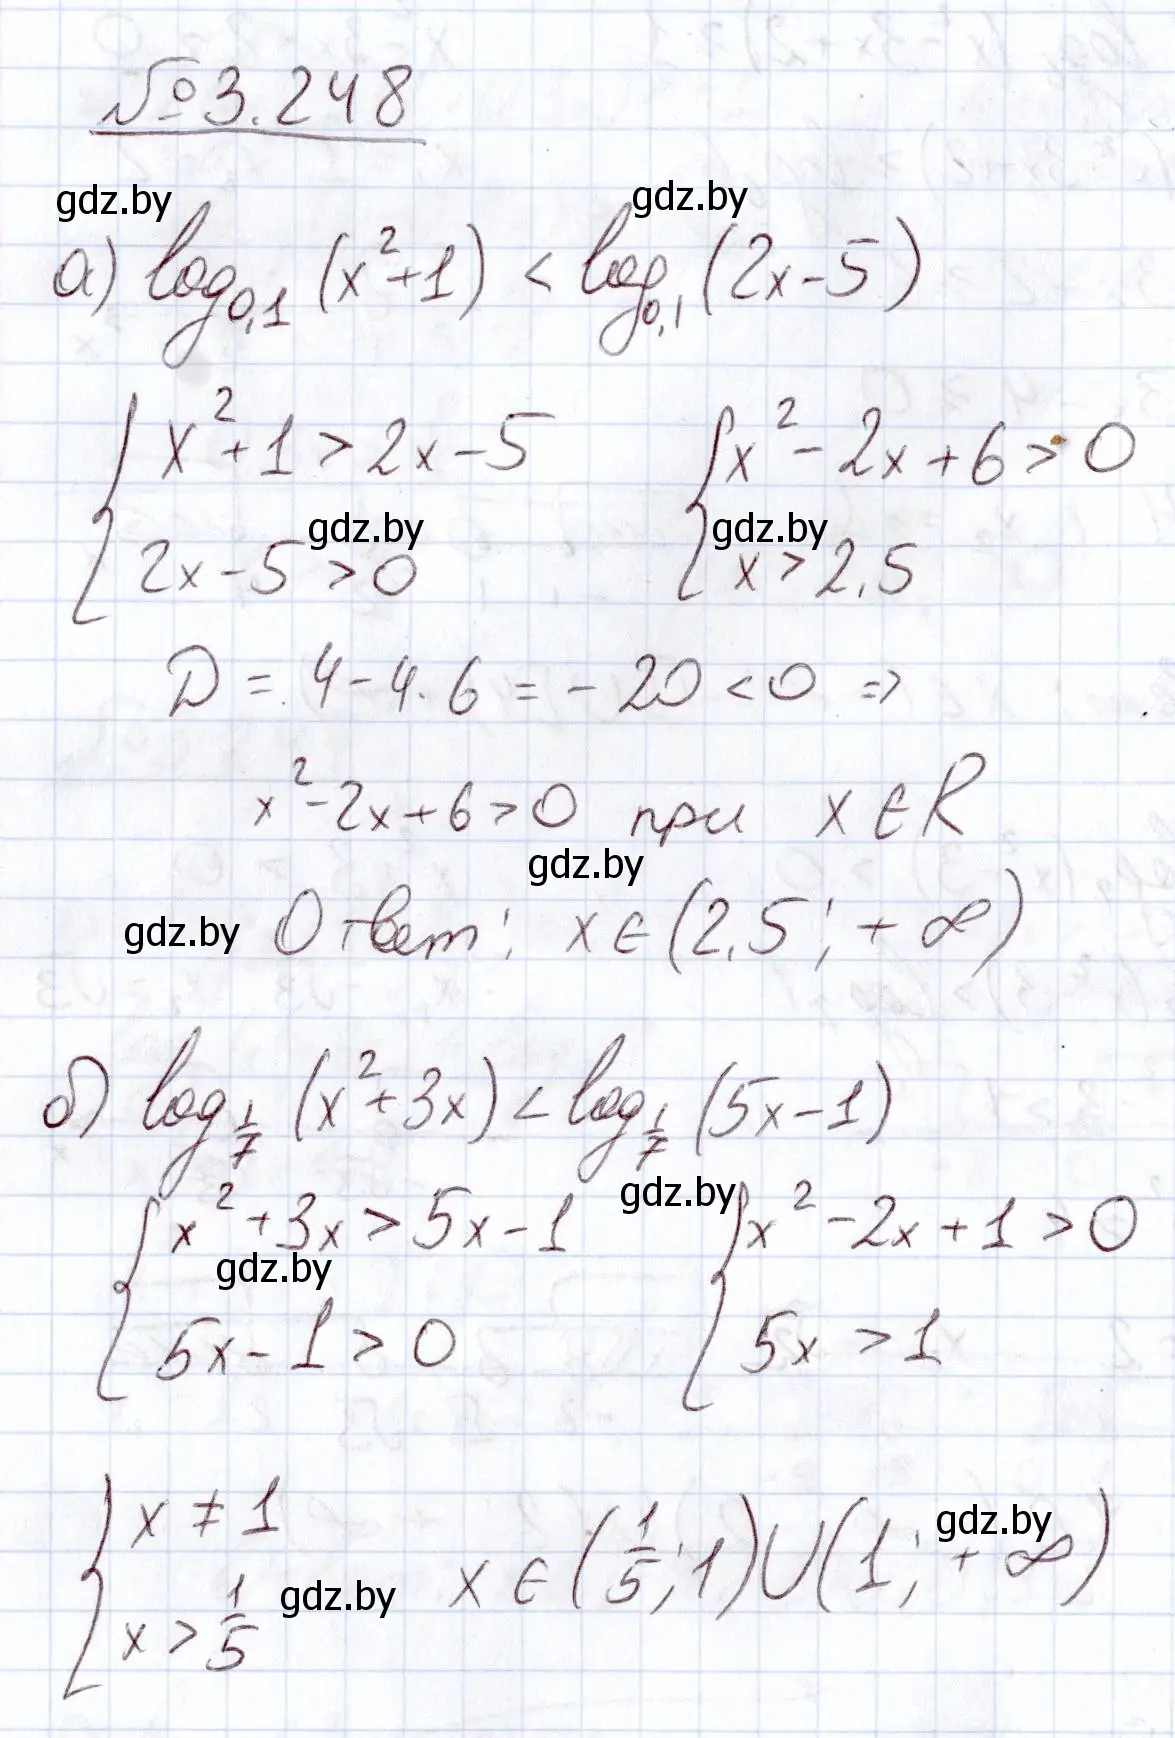 № 3.248
gdz.by gdz.by
а) log₀,₁ (x²+1) < log₀,₁ (2x-5)
{ x²+1 > 2x-5 { x²-2x+6 > 0
gdz.by gdz.by
2x-5 > 0 x > 2,5
D = 4-4·6 = -20 < 0 ⇒
x²-2x+6 > 0 при x ∈ R
gdz.by
gdz.by Ответ: x ∈ (2,5; +∞)
б) log_{1/7} (x²+3x) < log_{1/7} (5x-1)
gdz.by
{ x²+3x > 5x-1 { x²-2x+1 > 0
gdz.by
5x-1 > 0 5x > 1
gdz.by
{ x ≠ 1 x ∈ (1/5; 1) ∪ (1; +∞)
x > 1/5 gdz.by